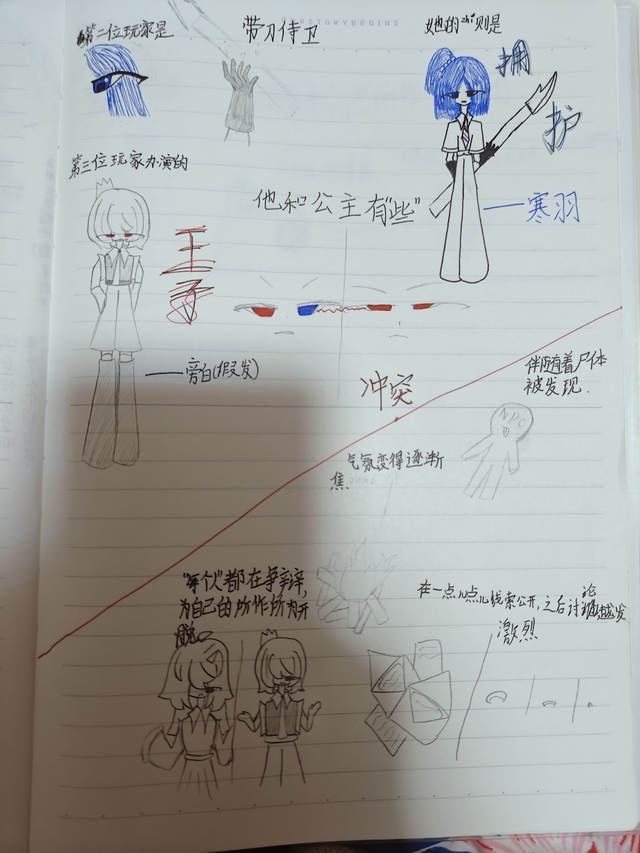 第二位玩家是
带刀侍卫
STORYBEGINS
她的"爪"则是
拥
护
第三位玩家扮演的
王
子
他和公主有"些"
——寒羽
——旁白(假发)
冲突
伴随着尸体
被发现.
NPC
气氛变得逐渐
焦
"每个人"都在争辩,
为自己的所作所为开
脱
在一点儿点儿线索公开,之后讨论越发
激烈